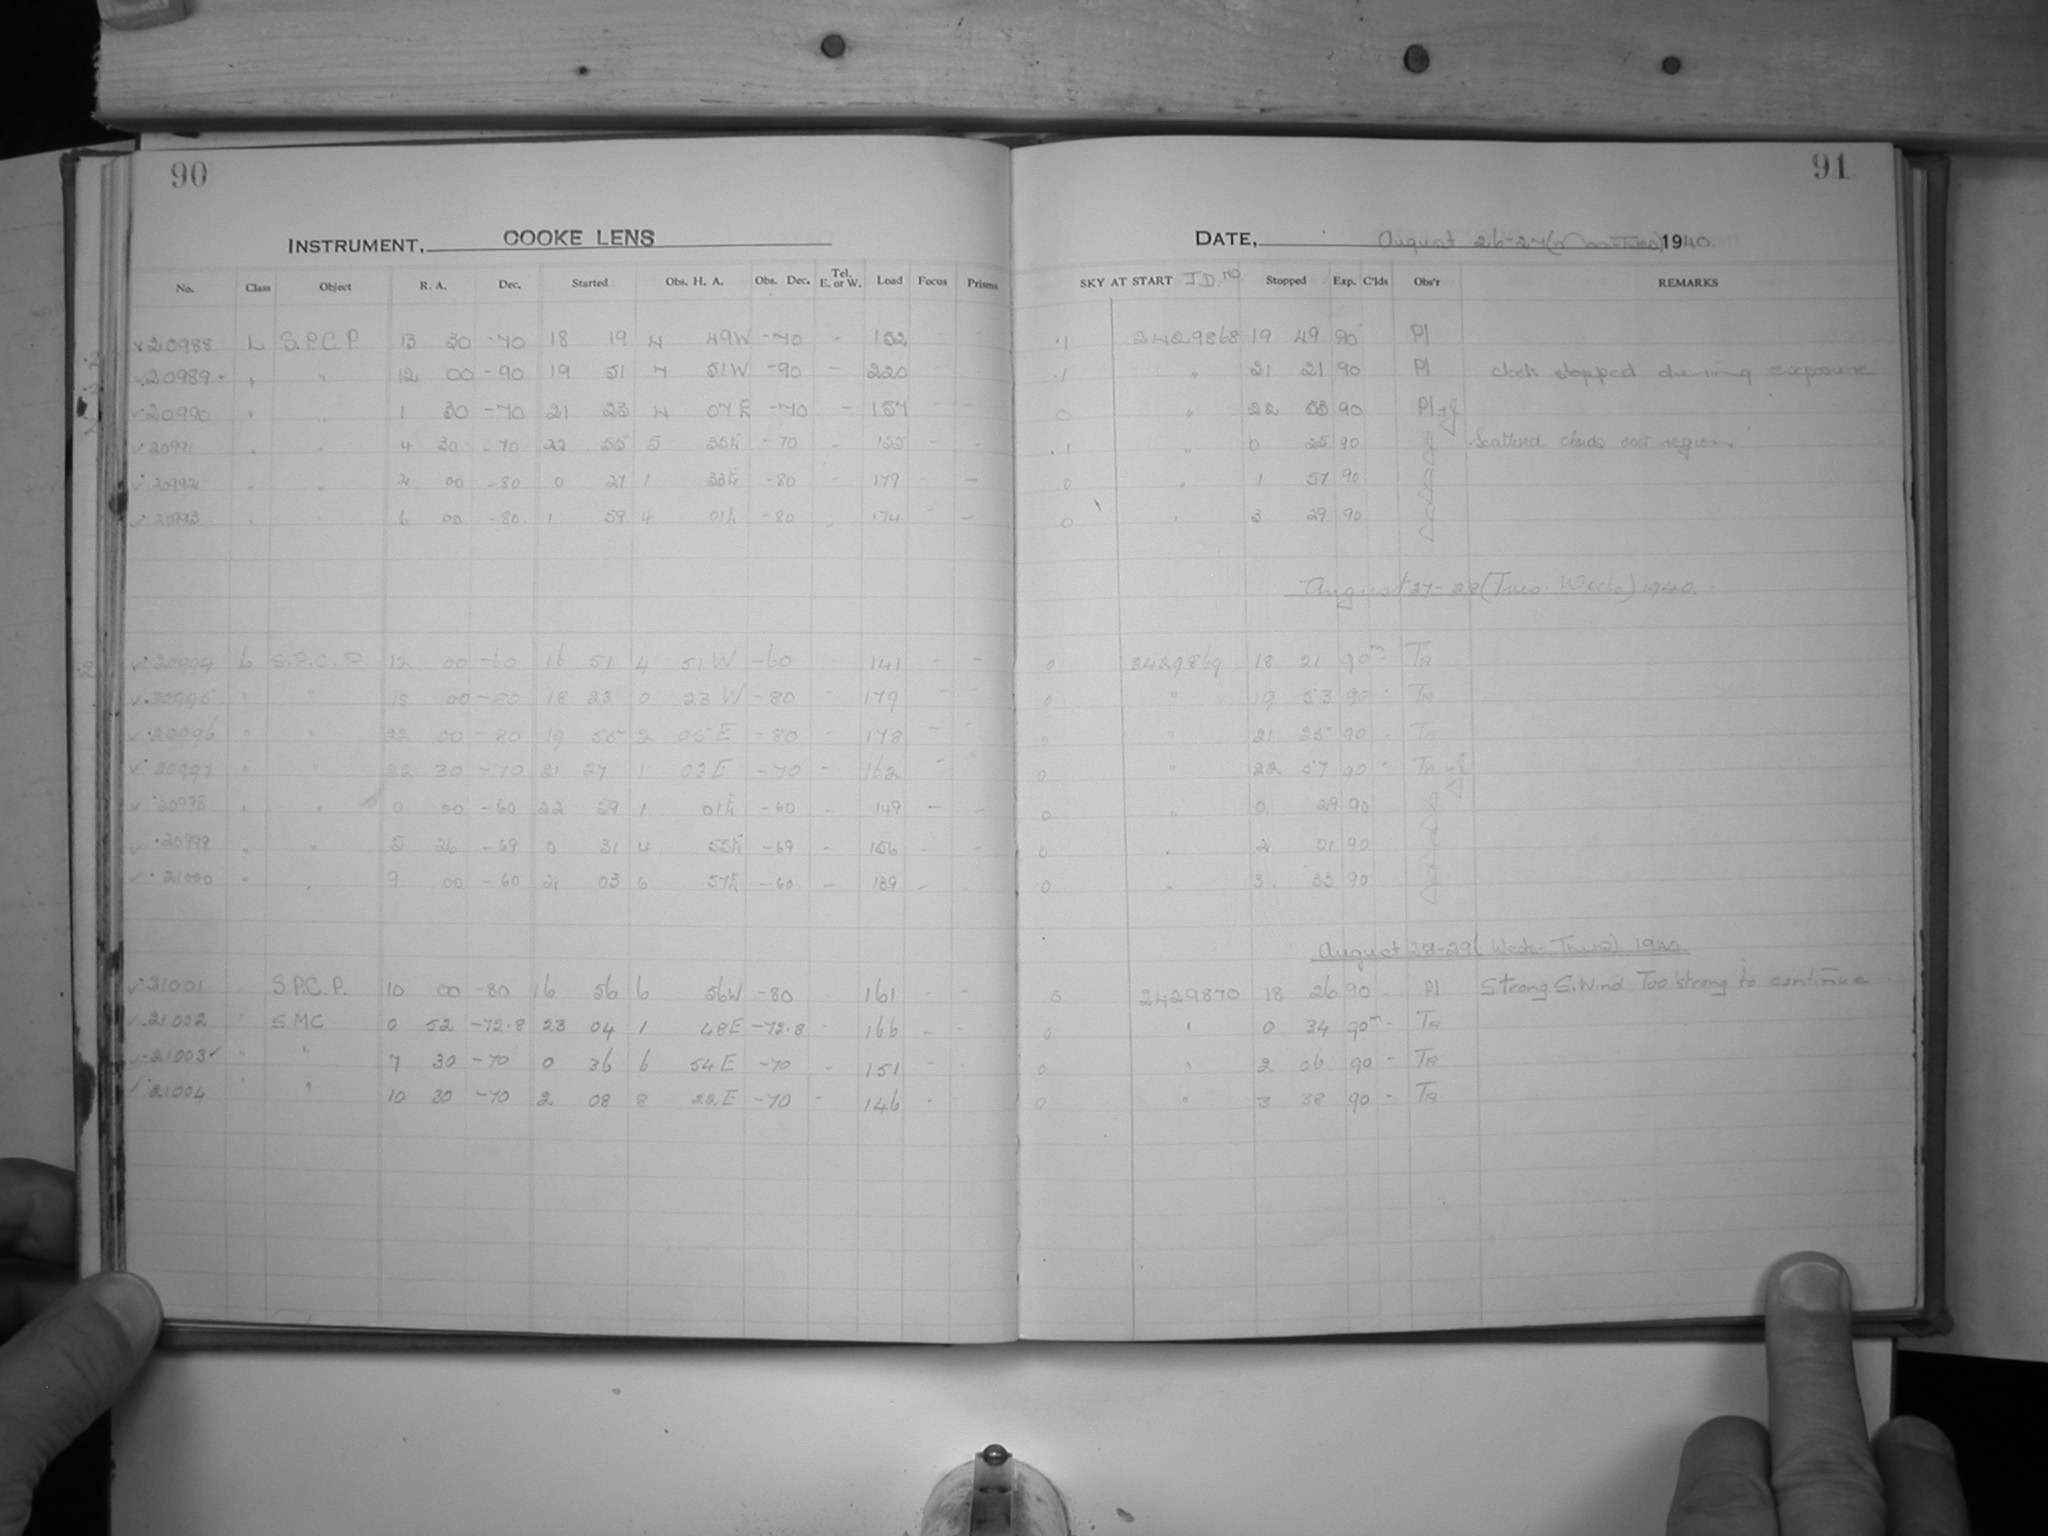 90
91
INSTRUMENT, COOKE LENS
DATE, August 26-27 (Mon-Tues) 1940.
No. Class Object R. A. Dec. Started Obs. H. A. Obs. Dec. Tel. E. or W. Load Focus Prisms SKY AT START J.D. no Stopped Exp. C'lds Obs'r REMARKS
20988 L S.P.C.P. 13 30 -70 18 19 4 49W -70 - 152 - - .1 2429868 19 49 90 Pl
20989 " " 12 00 -90 19 51 7 51W -90 - 220 - - .1 " 21 21 90 Pl clock stopped during exposure
20990 " " 1 30 -70 21 23 4 07E -70 - 157 - - 0 " 22 53 90 Pl + J
20991 " " 4 30 -70 22 55 5 35E -70 - 155 - - .1 " 0 25 90 J Scattered clouds over region
20992 " " 2 00 -80 0 27 1 33E -80 - 179 - - 0 " 1 57 90 J
20993 " " 6 00 -80 1 59 4 01E -80 - 174 - - 0 " 3 29 90 J
August 27-28 (Tues-Weds) 1940.
20994 L S.P.C.P 12 00 -60 16 51 4 51W -60 - 141 - - 0 2429869 18 21 90m - TB
20995 " " 18 00 -80 18 23 0 23W -80 - 179 - - 0 " 19 53 90 - TB
20996 " " 22 00 -80 19 55 2 05E -80 - 178 - - 0 " 21 25 90 - TB
20997 " " 22 30 -70 21 27 1 03E -70 - 162 - - 0 " 22 57 90 - TB + J
20998 " " 0 00 -60 22 59 1 01E -60 - 149 - - 0 " 0 29 90 J
20999 " " 5 26 -69 0 31 4 55E -69 - 156 - - 0 " 2 01 90 J
21000 " " 9 00 -60 2 03 6 57E -60 - 139 - - 0 " 3 33 90 J
August 28-29 (Weds-Thurs) 1940.
21001 " S.P.C.P. 10 00 -80 16 56 6 56W -80 - 161 - - 0 2429870 18 26 90 - Pl Strong S. Wind Too strong to continue
21002 " SMC 0 52 -72.8 23 04 1 48E -72.8 - 166 - - 0 " 0 34 90m - TB
21003 " " 7 30 -70 0 36 6 54E -70 - 151 - - 0 " 2 06 90 - TB
21004 " 10 30 -70 2 08 8 22E -70 - 146 - - 0 " 3 38 90 - TB